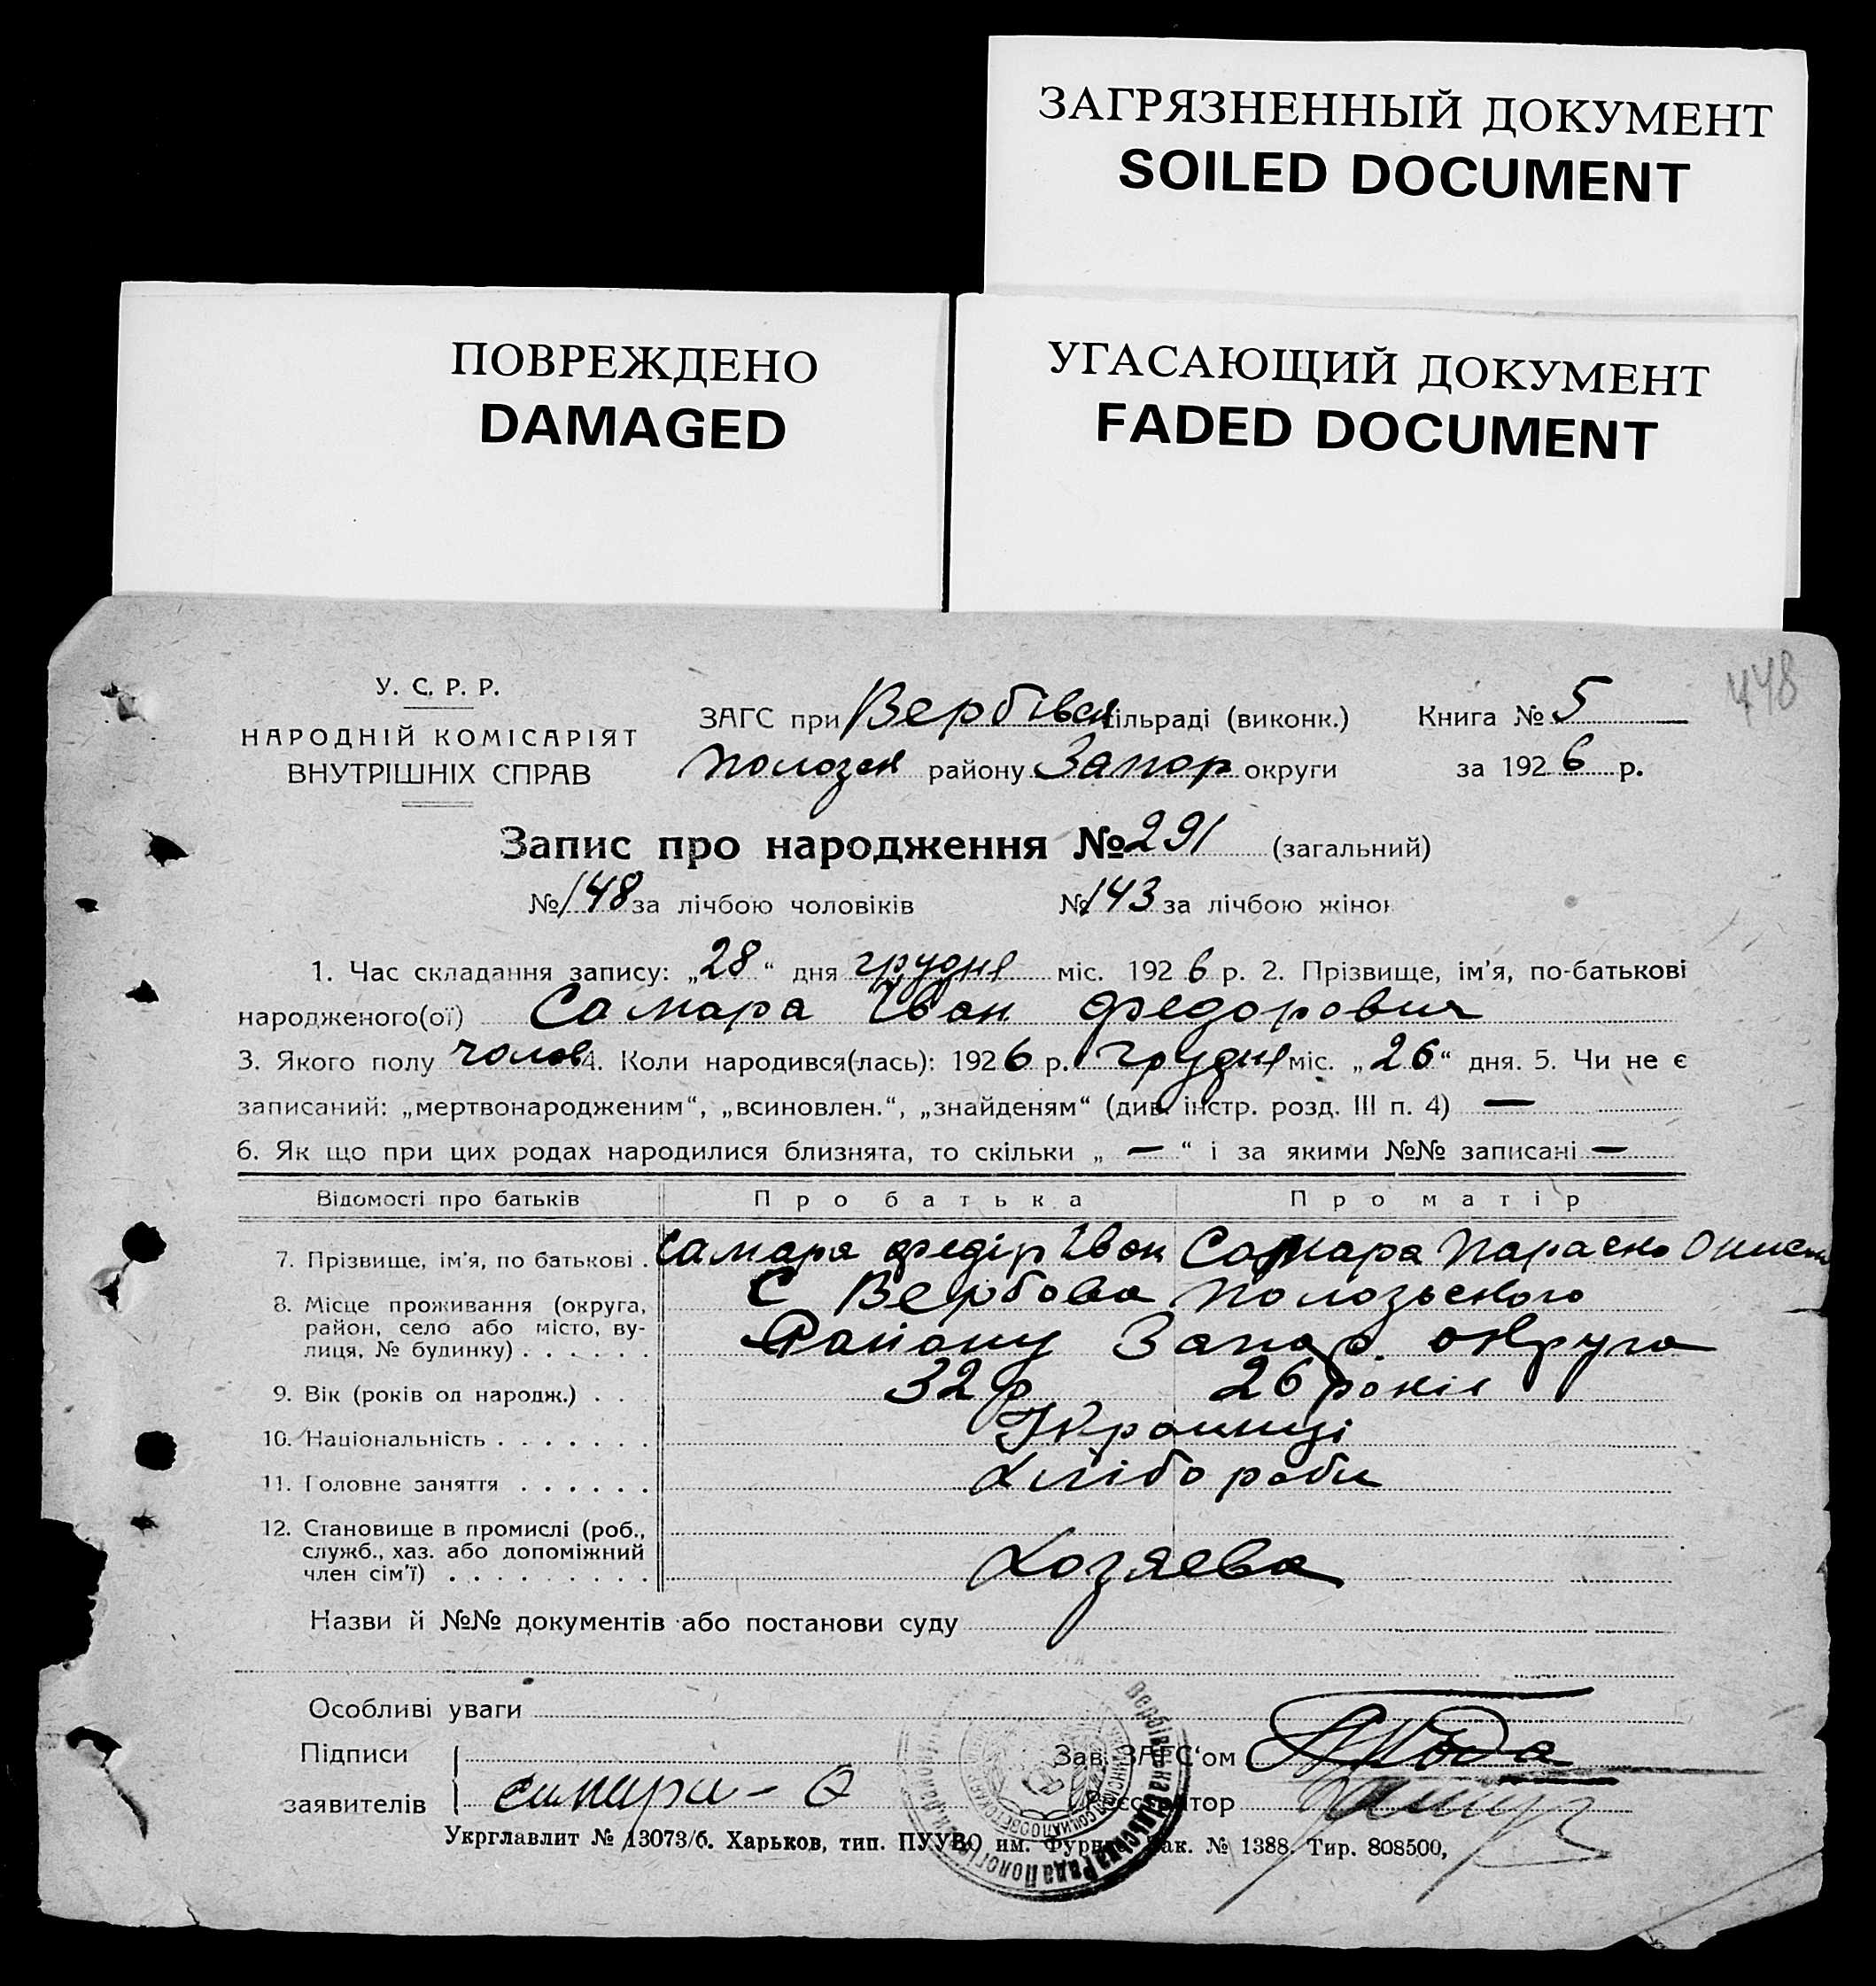 ЗАГРЯЗНЕННЫЙ ДОКУМЕНТ
SOILED DOCUMENT
ПОВРЕЖДЕНО
DAMAGED
УГАСАЮЩИЙ ДОКУМЕНТ
FADED DOCUMENT
448
У. С. Р. Р.
НАРОДНІЙ КОМІСАРІЯТ
ВНУТРІШНІХ СПРАВ
ЗАГС при Вербівськ сільраді (виконк.) Книга № 5
Пологск району Запор округи за 1926 р.
Запис про народження № 291 (загальний)
№ 148 за лічбою чоловіків № 143 за лічбою жінок
1. Час складання запису: „28“ дня грудня міс. 1926 р. 2. Прізвище, ім'я, по-батькові
народженого(ої) Самара Іван Федорович
3. Якого полу чолов 4. Коли народився(лась): 1926 р. грудня міс. „26“ дня. 5. Чи не є
записаний: „мертвонародженим“, „всиновлен.“, „знайденям“ (див. інстр. розд. III п. 4) —
6. Як що при цих родах народилися близнята, то скільки „ — “ і за якими №№ записані —
Відомості про батьків Про батька Про матір
7. Прізвище, ім'я, по батькові . Самара Федір Іван Самара Параско
8. Місце проживання (округа, район, село або місто, вулиця, № будинку) . . . . . . С Вербова Пологського
Району Запор. округа
9. Вік (років од народж.) . . 32 р 26 років
10. Національність . . . . . . . Українці
11. Головне заняття . . . . . . Хлібороби
12. Становище в промислі (роб.,
служб., хаз. або допоміжний
член сім'ї) . . . . . . . . . Хозяева
Назви й №№ документів або постанови суду
Особливі уваги
Підписи Зав. ЗАГС'ом
заявителів Самара - Реєстратор
Вербівська Сільська Рада
Укрглавлит № 13073/б. Харьков, тип. ПУУВО им. Фрунзе Зак. № 1388. Тир. 808500,